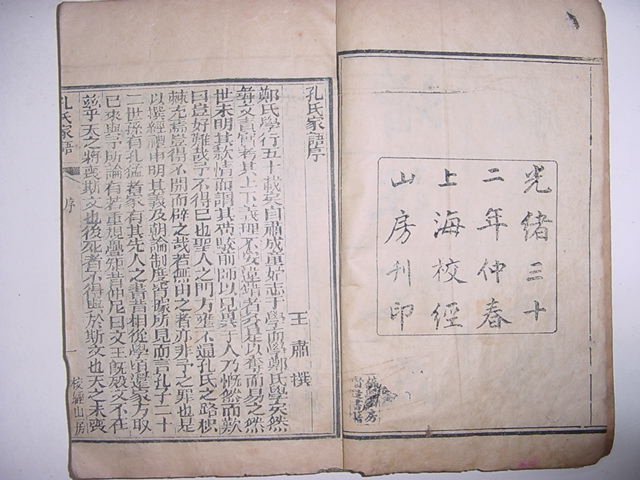 光緒三十
二年仲春
上海校經
山房刊印
孔氏家語序
王肅撰
鄭氏學行五十載矣自肅成童始志于學而學鄭氏學矣然
尋文責實考其上下義理不安違錯者多是以奪而易之然
世未明其款情而謂其苟駁前師以見異于人乃慨然而歎
曰豈好難哉予不得已也聖人之門方壅不通孔氏之路枳
棘充焉豈得不開而辟之哉若無由之者亦非予之罪也是
以撰經禮申明其義及朝論制度皆據所見而言孔子二十
二世孫有孔猛者家有其先人之書昔相從學頃還家方取
已來與予所論有若重規疊矩昔仲尼曰文王既歿文不在
茲乎天之將喪斯文也後死者不得與於斯文也天之未喪
孔氏家語
序
一
校經山房